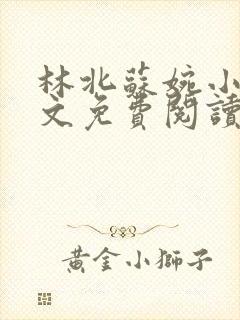 林北蘇婉小
文免費閱讀
黃金小獅子